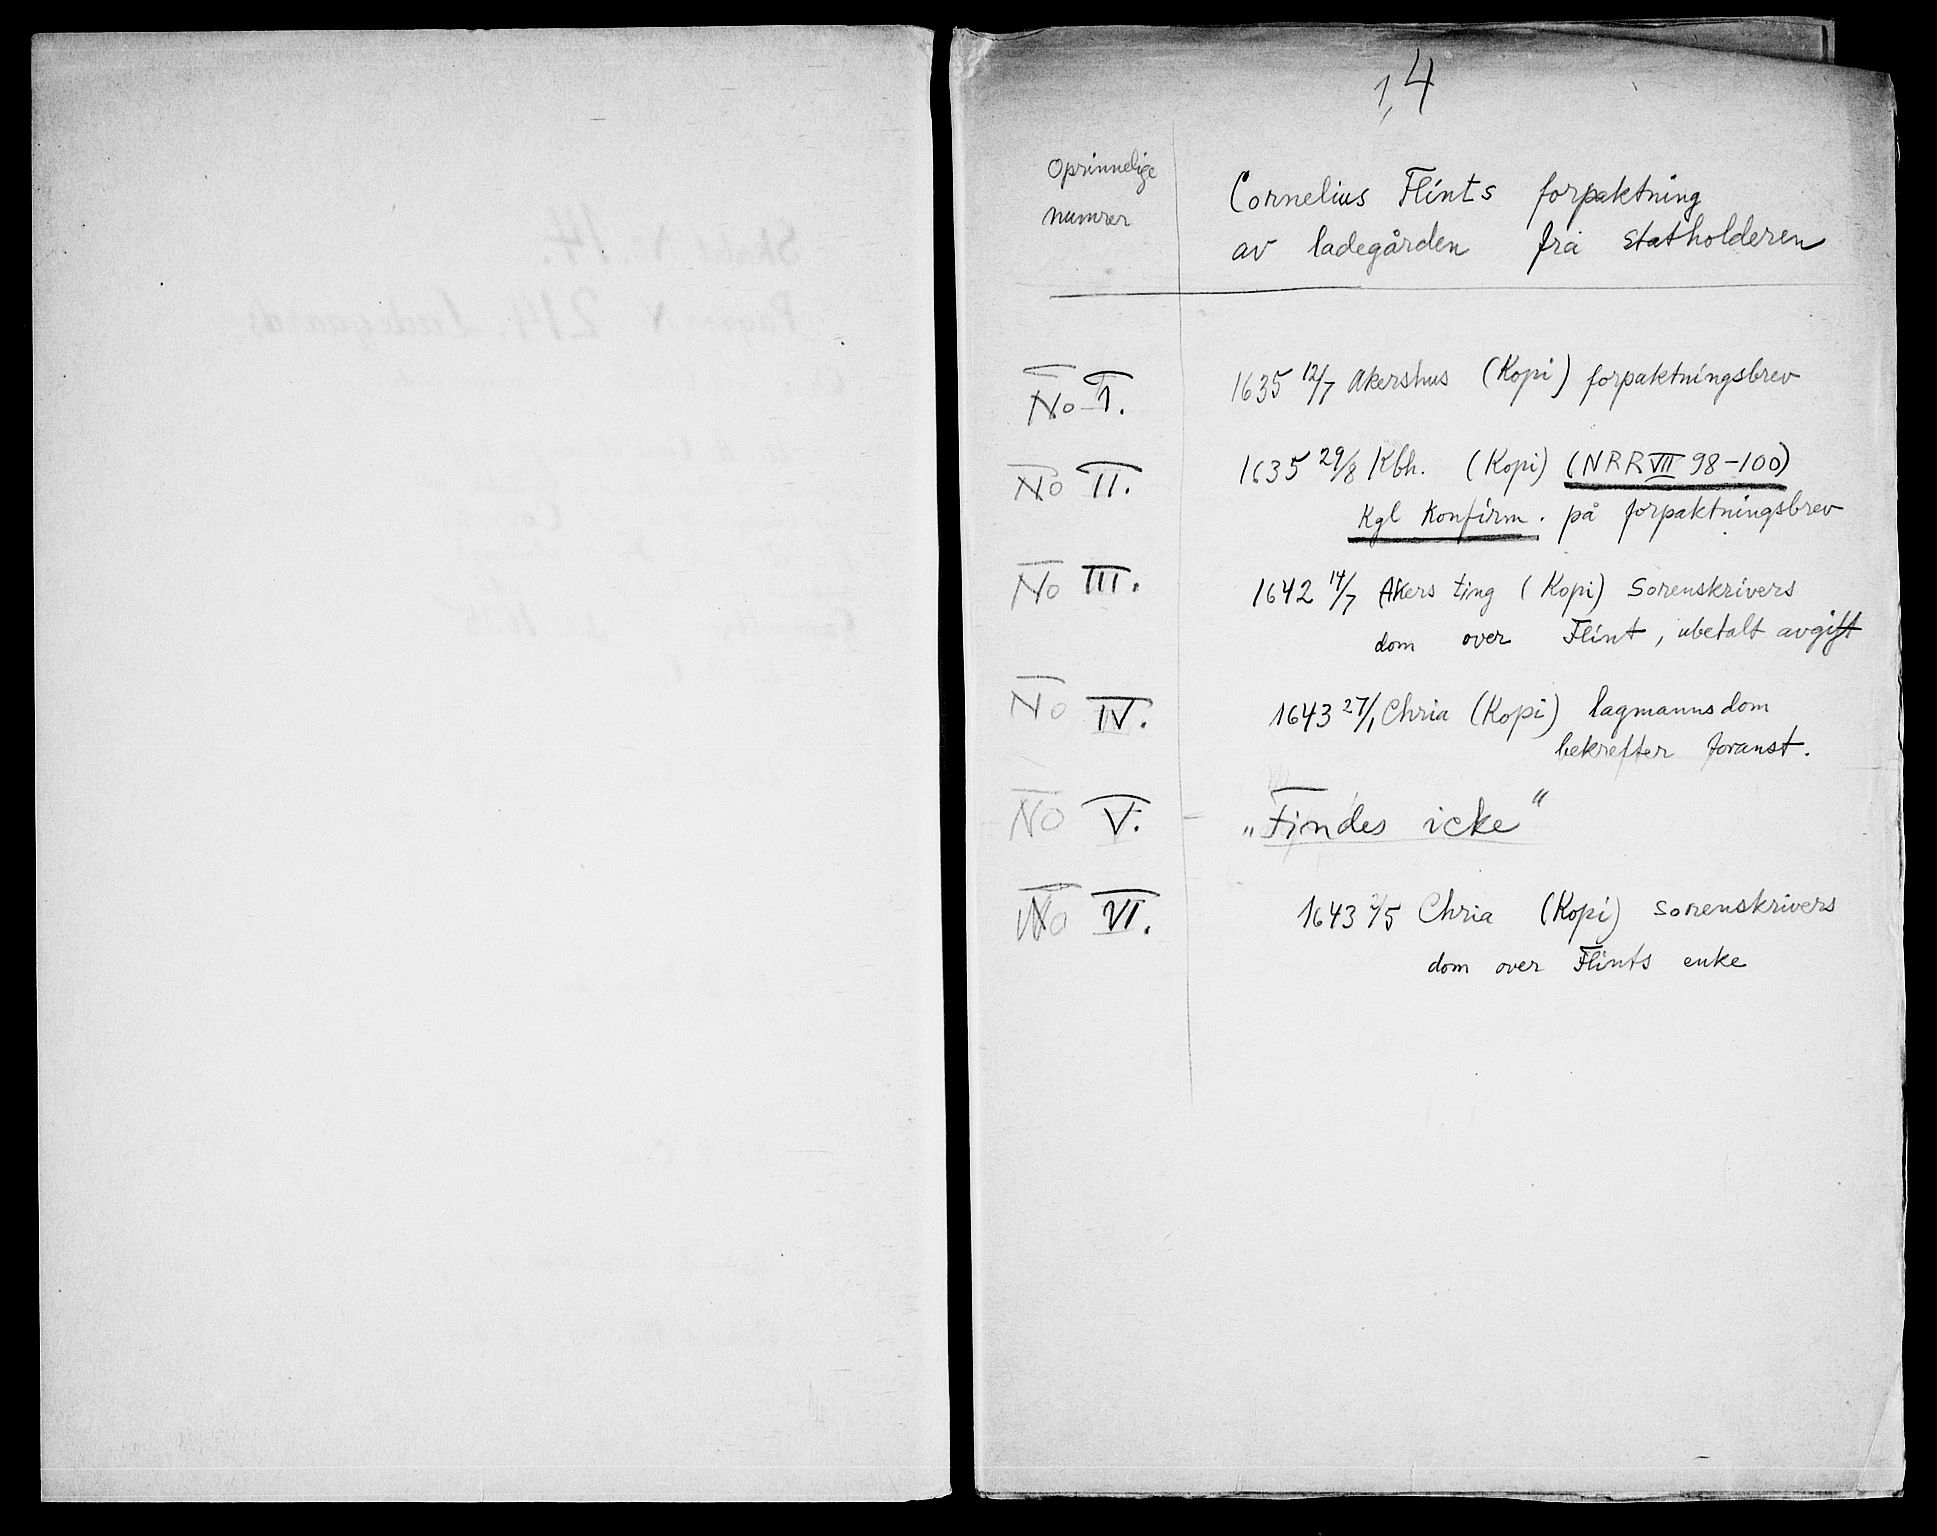 1,4
Oprinnelige
numrer
Cornelius Flints forpaktning
av ladegården fra statholderen
No I. 1635 12/7 Akershus (Kopi) forpaktningsbrev
No II. 1635 29/8 Kbh. (Kopi) (NRR VII 98-100)
Kgl Konfirm. på forpaktningsbrev
No III. 1642 14/7 Akers ting (Kopi) Sorenskrivers
dom over Flint, ubetalt avgift
No IV. 1643 27/1 Chria (Kopi) lagmannsdom
bekrefter foranst.
No V. - „Findes icke“
No VI. 1643 Chria (Kopi) sorenskrivers
dom over Flints enke